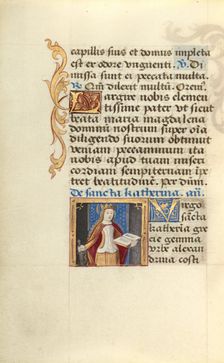 capillis suis et domus impleta
est ex odore unguenti. V. Di
missa sunt ei peccata multa.
R. Qm̄ dilexit multū. Orem9.
Largire nobis clemen
tissime pater ut sicut
beata maria magdalena
dominū nostrum super oīa
diligendo suorum obtinuit
veniam peccaminum ita
nobis apud tuam miseri
cordiam sempiternam im
petret beatitudinē. Per dn̄m.
De sancta katherina. añ.
Virgo
sācta
katheria
grecie gemma
urbe alexan
drina costi